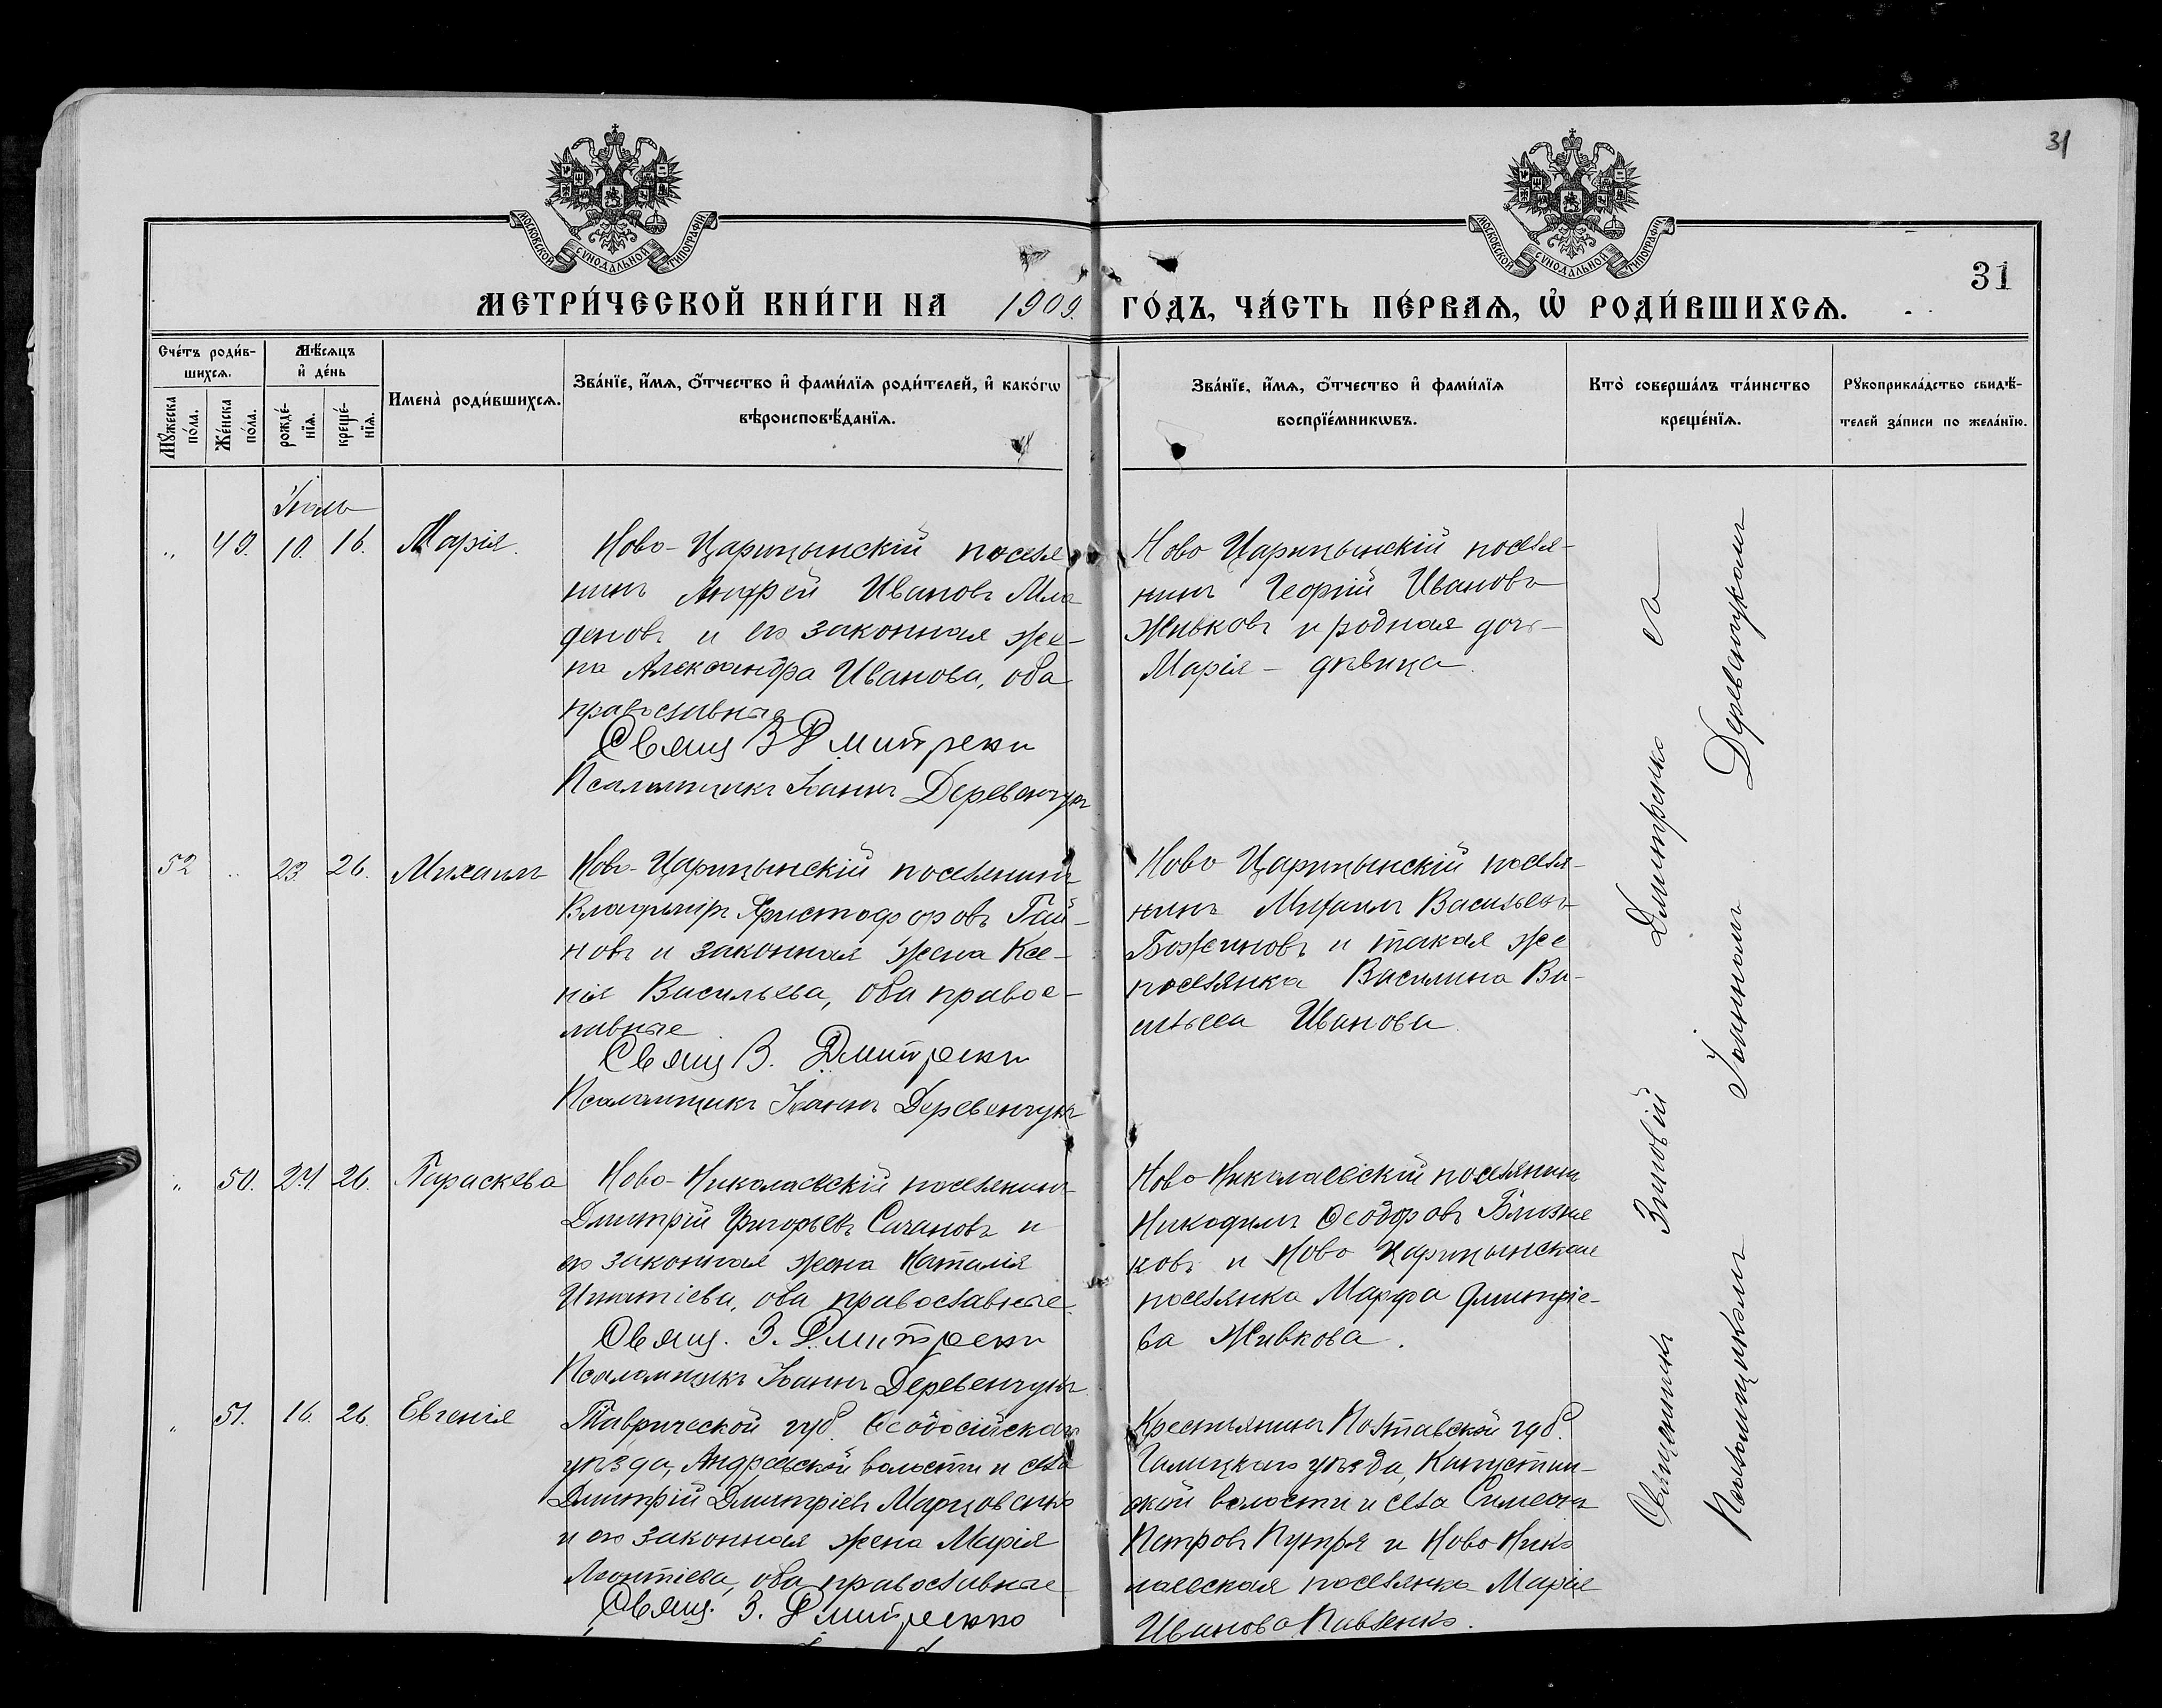 31
МОСКОВСКОЙ СѴНОДАЛЬНОЙ ТИПОГРАФІИ
МОСКОВСКОЙ СѴНОДАЛЬНОЙ ТИПОГРАФІИ
31
МЕТРИ́ЧЕСКОЙ КНИ́ГИ НА 1909. ГО́ДЪ, ЧА́СТЬ ПЕ́РВАѦ, Ѡ҆ РОДИ́ВШИХСѦ.
Сче́тъ роди́в-
шихсѧ.
Мѣ́сѧцъ
и҆ де́нь
Мꙋ́жеска
по́ла.
Же́нска
по́ла.
рожде́-
нїѧ.
креще́-
нїѧ.
Имена̀ роди́вшихсѧ.
Зва́нїе, и҆́мѧ, ѻ҆́тчество и҆ фами́лїѧ роди́телей, и҆ како́гѡ
вѣроисповѣ́данїѧ.
Зва́нїе, и҆́мѧ, ѻ҆́тчество и҆ фами́лїѧ
воспрїе́мникѡвъ.
Кто̀ соверша́лъ та́инство
креще́нїѧ.
Рꙋкоприкла́дство свидѣ́-
телей за́писи по жела́нїю.
Іюль
" 49. 10. 16. Марія.
Ново-Царицынскій поселя
нинъ Андрей Ивановъ Мла
деновъ и его законная же-
на Александра Иванова, оба
православные
Свящ З Дмитренко
Псаломщикъ Іоаннъ Деревенчукъ
Ново Царицынскій поселя-
нинъ Георгій Ивановъ
Живковъ и родная дочь
Марія - дѣвица.
52 " 23. 26. Михаилъ
Ново-Царицынскій поселянинъ
Владиміръ Христофоровъ Гай-
новъ и законная жена Ксе-
нія Васильева, оба правос-
лавные
Свящ З. Дмитренко
Псаломщикъ Іоаннъ Деревенчукъ
Ново Царицынскій поселя-
нинъ Михаилъ Васильевъ
Божиновъ и такая же
поселянка Василина Ва-
сильева Иванова
" 50. 24. 26. Параскева
Ново-Николаевскій поселянинъ
Дмитрій Григорьевъ Сачановъ и
его законная жена Наталія
Игнатіева, оба православные.
Свящ. З. Дмитренко
Псаломщикъ Іоаннъ Деревенчукъ
Ново Николаевскій поселянинъ
Никодимъ Ѳеодоровъ Близне
ковъ и Ново Царицынская
поселянка Марфа Дмитріе-
ва Живкова.
" 51. 16. 26. Евгенія
Таврической губ. Ѳеодосійскаго
уѣзда, Андреевской волости и села
Дмитрій Дмитріевъ Марцовенко
и его законная жена Марія
Леонтіева, оба православные
Свящ. З. Дмитренко
Крестьянинъ Полтавской губ.
уѣзда, Капустин-
ской волости и села Симеонъ
Петровъ и Ново Нико
лаевская поселянка Марія
Иванова Павленко.
Священникъ Зиновій Дмитренко съ
Псаломщикомъ Іоанномъ Деревенчукомъ